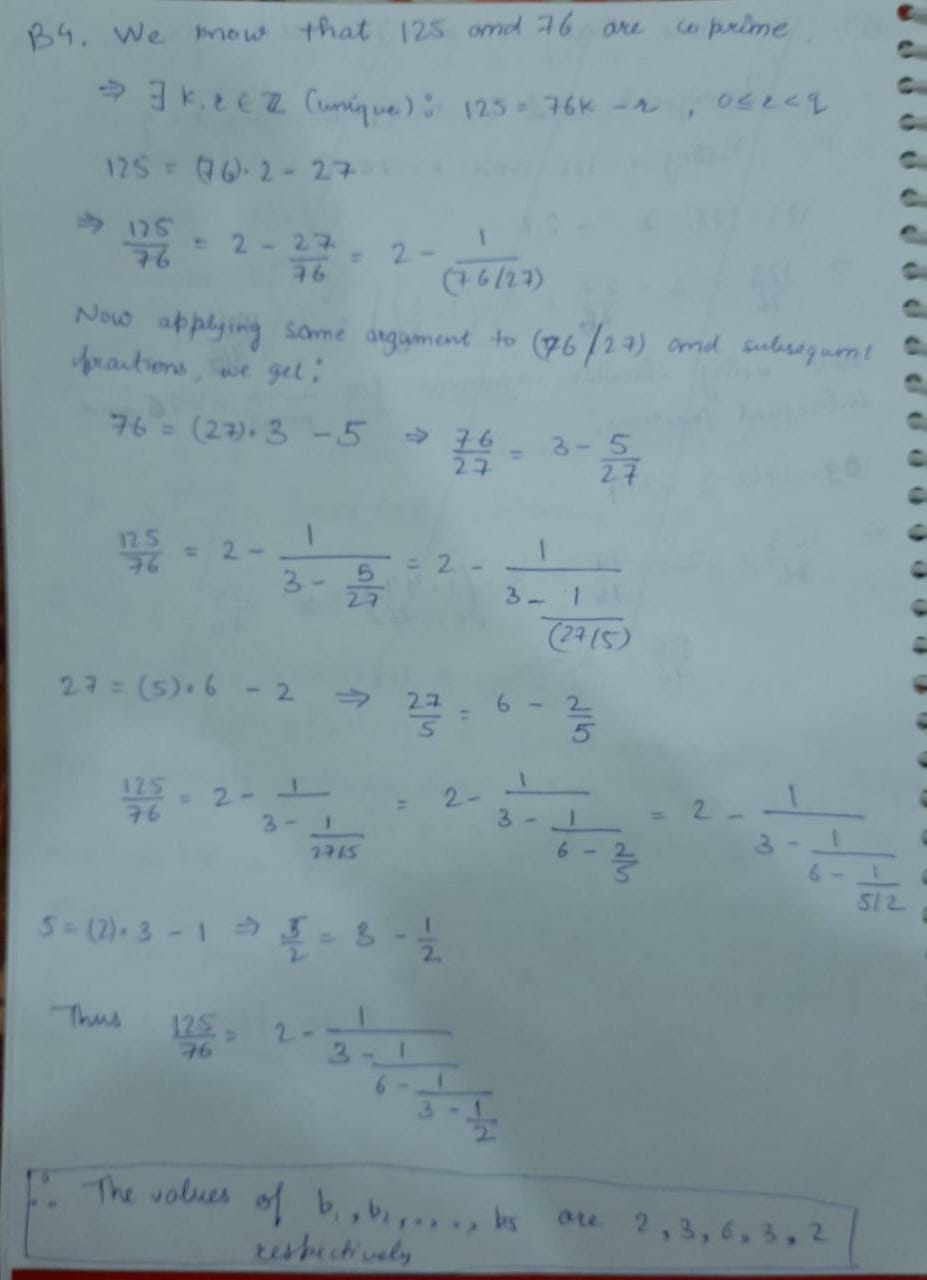 B4. We know that 125 and 76 are coprime.
⇒ ∃ k, r ∈ ℤ (unique): 125 = 76k - r, 0 ≤ r < q
125 = (76)·2 - 27
⇒ 125/76 = 2 - 27/76 = 2 - 1/(76/27)
Now applying same argument to (76/27) and subsequent
fractions, we get:
76 = (27)·3 - 5 ⇒ 76/27 = 3 - 5/27
125/76 = 2 - 1/(3 - 5/27) = 2 - 1/(3 - 1/(27/5))
27 = (5)·6 - 2 ⇒ 27/5 = 6 - 2/5
125/76 = 2 - 1/(3 - 1/(27/5)) = 2 - 1/(3 - 1/(6 - 2/5)) = 2 - 1/(3 - 1/(6 - 1/(5/2)))
5 = (2)·3 - 1 ⇒ 5/2 = 3 - 1/2
Thus 125/76 = 2 - 1/(3 - 1/(6 - 1/(3 - 1/2)))
∴ The values of b₁, b₂, ...., b₅ are 2, 3, 6, 3, 2
respectively